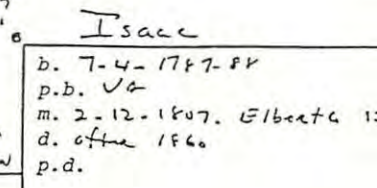 Isaac
b. 7-4-1787-88
p.b. Va
m. 2-12-1807. Elbert G
d. after 1860
p.d.